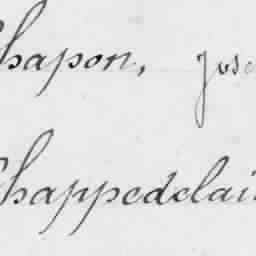 Chapon, Jose
Chappedelai